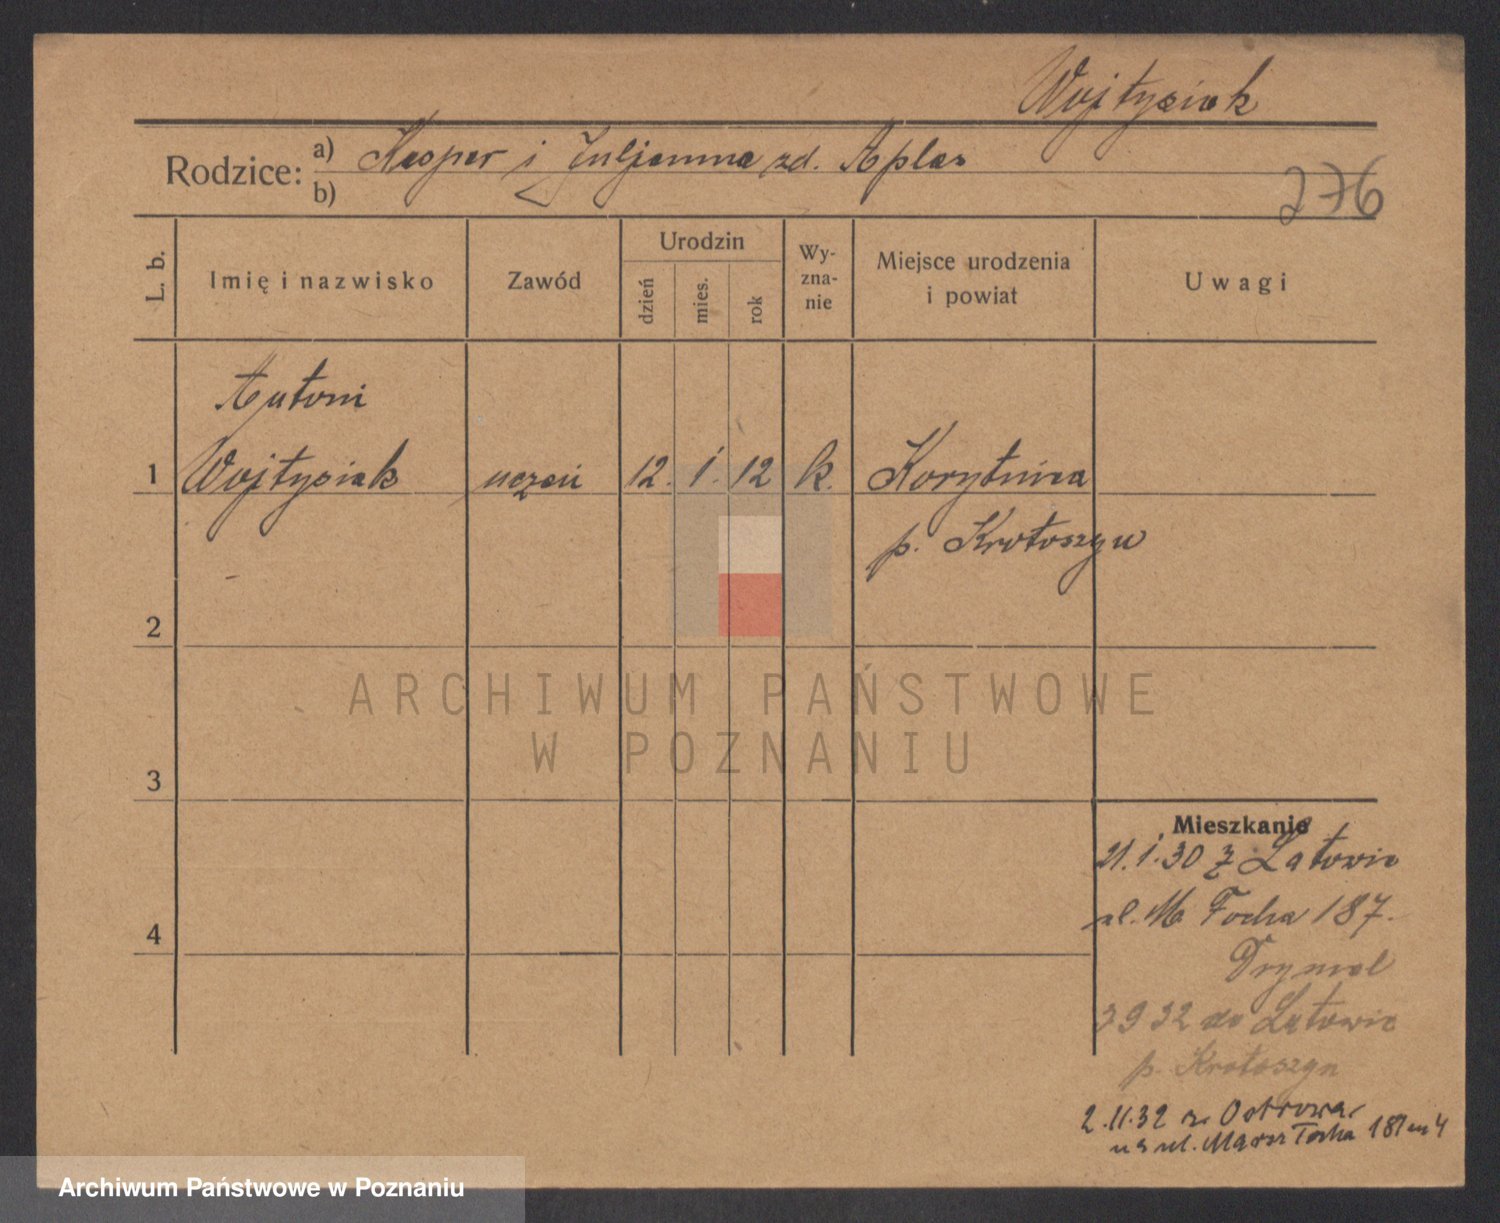 Wojtysiak
Rodzice: a) Kasper i Juljanna zd. Aplas
b)
276
L. b.
Imię i nazwisko
Zawód
Urodzin
dzień
mies.
rok
Wy-
zna-
nie
Miejsce urodzenia
i powiat
Uwagi
Antoni
1 Wojtysiak uczeń 12. 1. 12 k. Korytnica
p. Krotoszyn
2
3
4
ARCHIWUM PAŃSTWOWE
W POZNANIU
Mieszkanie
21.1.30 z Latowic
ul. M Focha 187.
Drymel
3 9 32 do Latowic
p. Krotoszyn
2.11.32 z Ostrowa
na ul. Marsz Focha 187 m 4
Archiwum Państwowe w Poznaniu